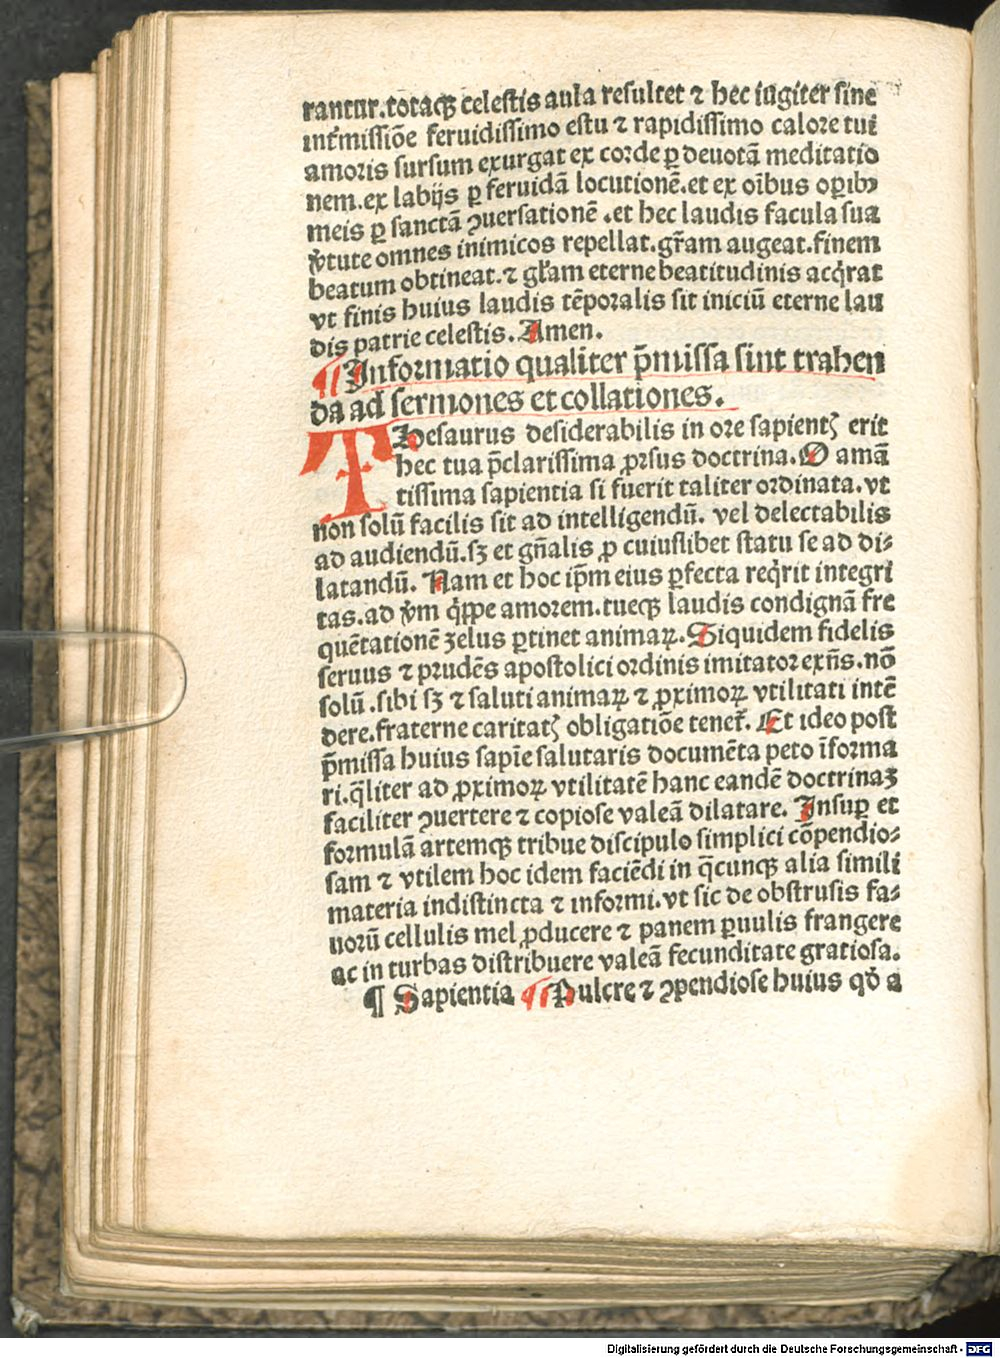 rantur.totaqꝫ celestis aula resultet ⁊ hec iugiter sine
int̄missiōe feruidissimo estu ⁊ rapidissimo calore tui
amoris sursum exurgat ex corde ꝑ deuotā meditatio
nem.ex labijs ꝑ feruidā locutionē.et ex oībus oꝑibꝰ
meis ꝑ sanctā ꝯuersationē .et hec laudis facula sua
v̓tute omnes inimicos repellat.gr̄am augeat.finem
beatum obtineat.⁊ gl̓am eterne beatitudinis acq̓rat
vt finis huius laudis tēporalis sit iniciū eterne lau
dis patrie celestis. Amen.
¶ Informatio qualiter p̄missa sint trahen
da ad sermones et collationes.
THesaurus desiderabilis in ore sapientꝭ erit
hec tua p̄clarissima ꝓrsus doctrina. O amā
tissima sapientia si fuerit taliter ordinata.vt
non solū facilis sit ad intelligendū. vel delectabilis
ad audiendū.sꝫ et gn̄alis ꝓ cuiuslibet statu se ad di⸗
latandū. Nam et hoc ip̄m eius ꝑfecta req̓rit integri
tas.ad v̓m q̓ppe amorem.tueqꝫ laudis condignā fre
quētationē zelus ꝑtinet animaꝝ. Siquidem fidelis
seruus ⁊ prudēs apostolici ordinis imitator exn̄s.nō
solū .sibi sꝫ ⁊ saluti animaꝝ ⁊ ꝓximoꝝ vtilitati intē
dere.fraterne caritatꝭ obligatiōe tenet̄. Et ideo post
p̄missa huius sapīe salutaris documēta peto īforma
ri.q̄liter ad ꝓximoꝝ vtilitatē hanc eandē doctrinaꝫ
faciliter ꝯuertere ⁊ copiose valeā dilatare. Insuꝑ et
formulā artemqꝫ tribue discipulo simplici cōpendio⸗
sam ⁊ vtilem hoc idem faciēdi in q̄cunqꝫ alia simili
materia indistincta ⁊ informi.vt sic de obstrusis fa⸗
uorū cellulis mel ꝓducere ⁊ panem ꝑuulis frangere
ac in turbas distribuere valeā fecunditate gratiosa.
¶ Sapientia ¶ Pulcre ⁊ ꝯpendiose huius qd̓ a
Digitalisierung gefördert durch die Deutsche Forschungsgemeinschaft - DFG